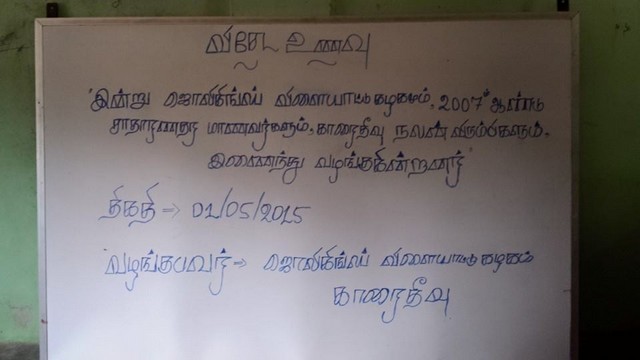 விசேட உணவு
"இன்று ஜொலிகிங்ஸ் விளையாட்டு கழகமும், 2007ம் ஆண்டு
சாதாரணதர மாணவர்களும், காரைதீவு நலன் விரும்பிகளும்,
இணைந்து வழங்குகின்றனர்
திகதி ⇒ 01/05/2015
வழங்குபவர் ⇒ ஜொலிகிங்ஸ் விளையாட்டு கழகம்
காரைதீவு